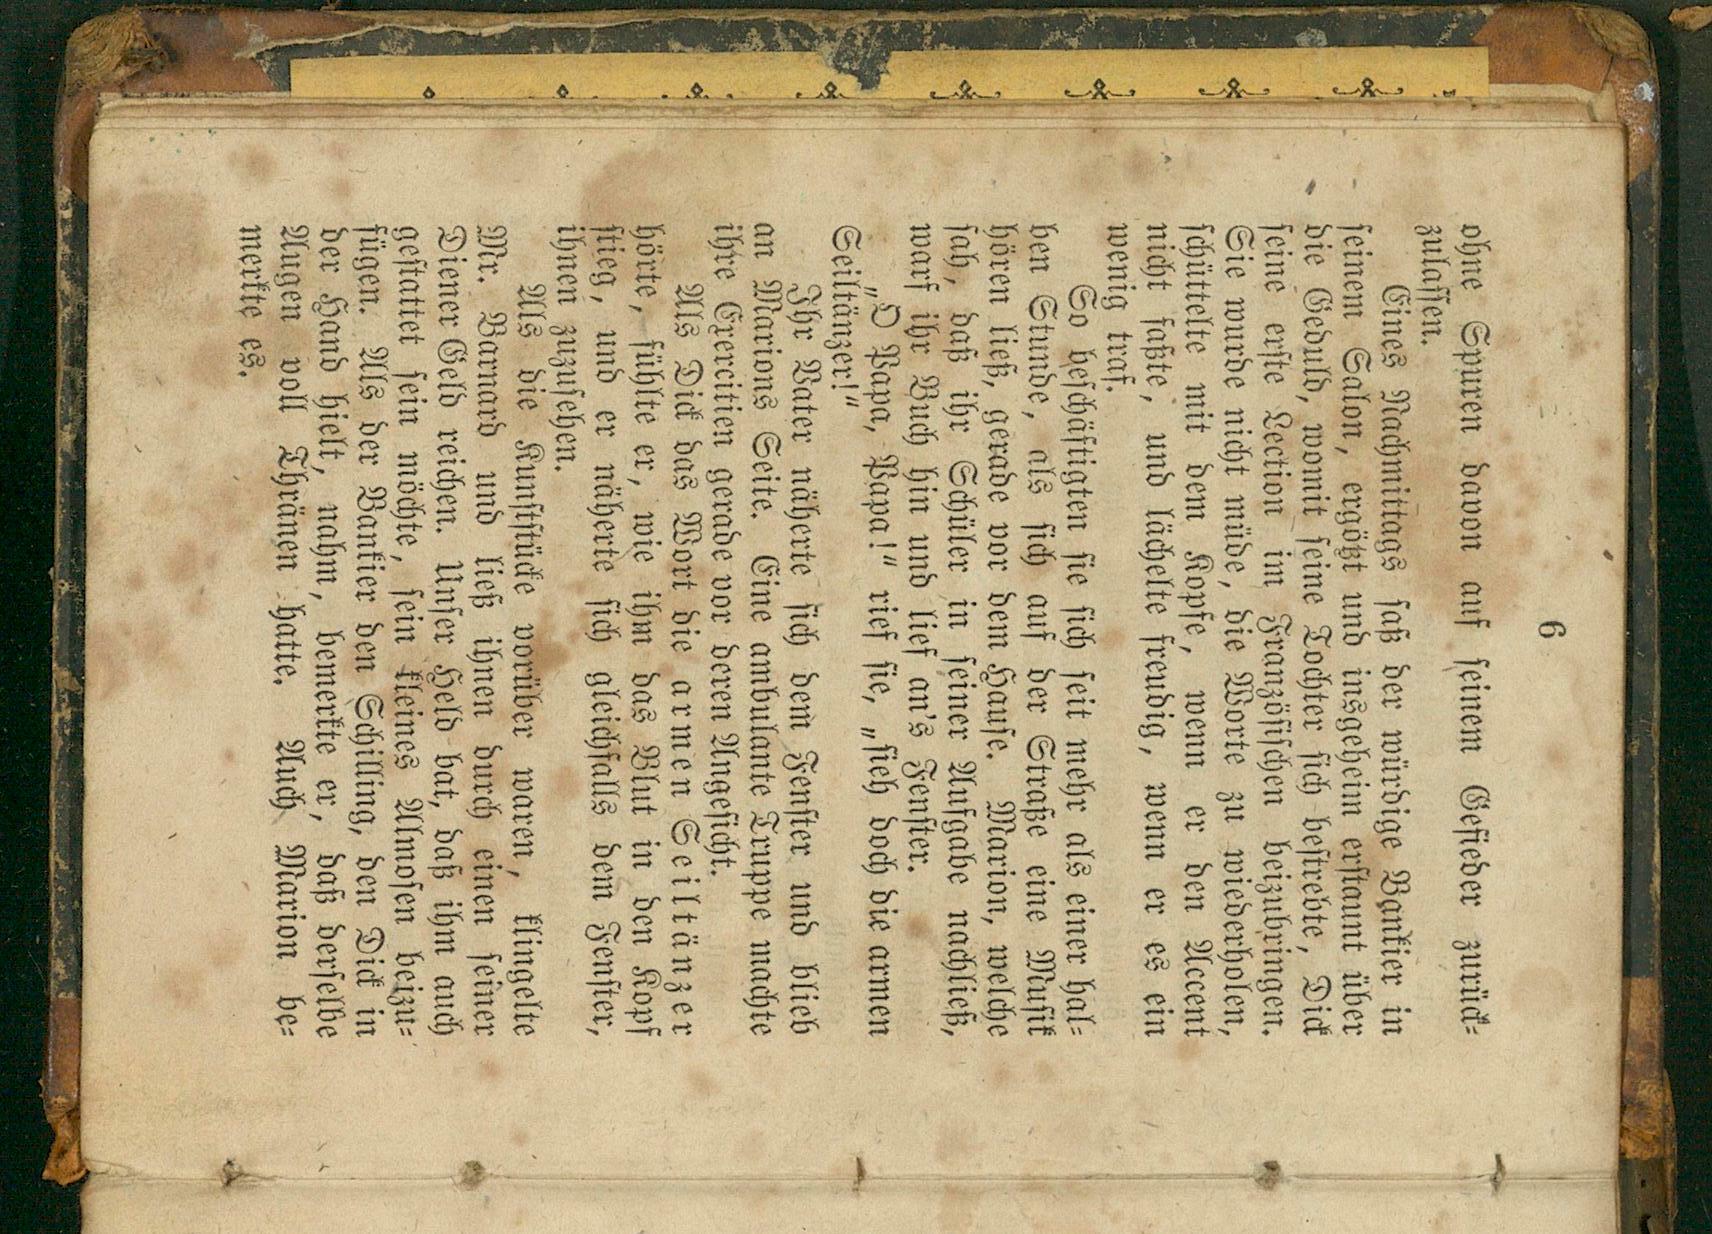 6
ohne Spuren davon auf seinem Gefieder zurück-
zulassen.
Eines Nachmittags saß der würdige Bankier in
seinem Salon, ergötzt und insgeheim erstaunt über
die Geduld, womit seine Tochter sich bestrebte, Dick
seine erste Lection im Französischen beizubringen.
Sie wurde nicht müde, die Worte zu wiederholen,
schüttelte mit dem Kopfe, wenn er den Accent
nicht faßte, und lächelte freudig, wenn er es ein
wenig traf.
So beschäftigten sie sich seit mehr als einer hal-
ben Stunde, als sich auf der Straße eine Musik
hören ließ, gerade vor dem Hause. Marion, welche
sah, daß ihr Schüler in seiner Aufgabe nachließ,
warf ihr Buch hin und lief an's Fenster.
„O Papa, Papa!" rief sie, „sieh doch die armen
Seiltänzer!"
Ihr Vater näherte sich dem Fenster und blieb
an Marions Seite. Eine ambulante Truppe machte
ihre Exercitien gerade vor deren Angesicht.
Als Dick das Wort die armen Seiltänzer
hörte, fühlte er, wie ihm das Blut in den Kopf
stieg, und er näherte sich gleichfalls dem Fenster,
ihnen zuzusehen.
Als die Kunststücke vorüber waren, klingelte
Mr. Barnard und ließ ihnen durch einen seiner
Diener Geld reichen. Unser Held bat, daß ihm auch
gestattet sein möchte, sein kleines Almosen beizu-
fügen. Als der Bankier den Schilling, den Dick in
der Hand hielt, nahm, bemerkte er, daß derselbe
Augen voll Thränen hatte. Auch Marion be-
merkte es.